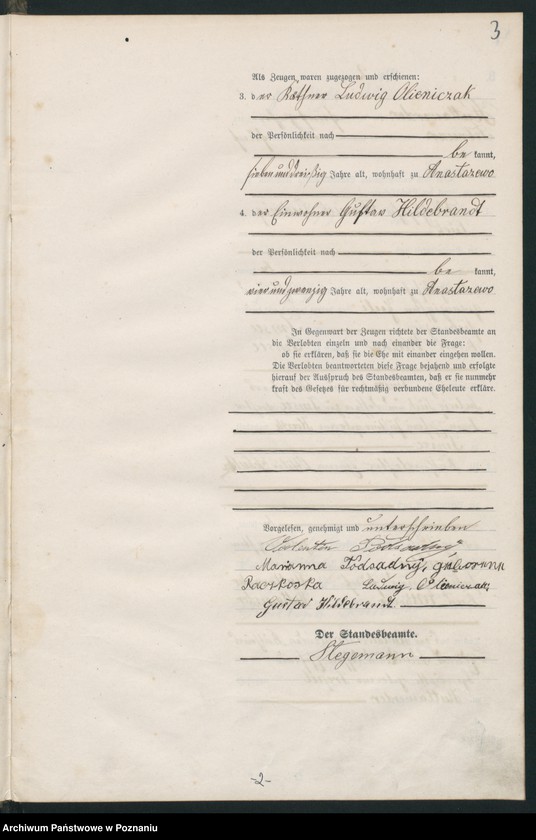 3
Als Zeugen waren zugezogen und erschienen:
3. der Käthner Ludwig Olieniczak
der Persönlichkeit nach
be kannt,
siebenunddreißig Jahre alt, wohnhaft zu Anastazewo
4. der Einwohner Gustav Hildebrandt
der Persönlichkeit nach
be kannt,
vierundzwanzig Jahre alt, wohnhaft zu Anastazewo
In Gegenwart der Zeugen richtete der Standesbeamte an
die Verlobten einzeln und nach einander die Frage:
ob sie erklären, daß sie die Ehe mit einander eingehen wollen.
Die Verlobten beantworteten diese Frage bejahend und erfolgte
hierauf der Ausspruch des Standesbeamten, daß er sie nunmehr
kraft des Gesetzes für rechtmäßig verbundene Eheleute erkläre.
Vorgelesen, genehmigt und unterschrieben
Valentin
Marianna Podsadny, geborene
Raczkoska Ludwig Olieniczak
Gustav Hildebrandt
Der Standesbeamte.
Stegemann
-2-
Archiwum Państwowe w Poznaniu